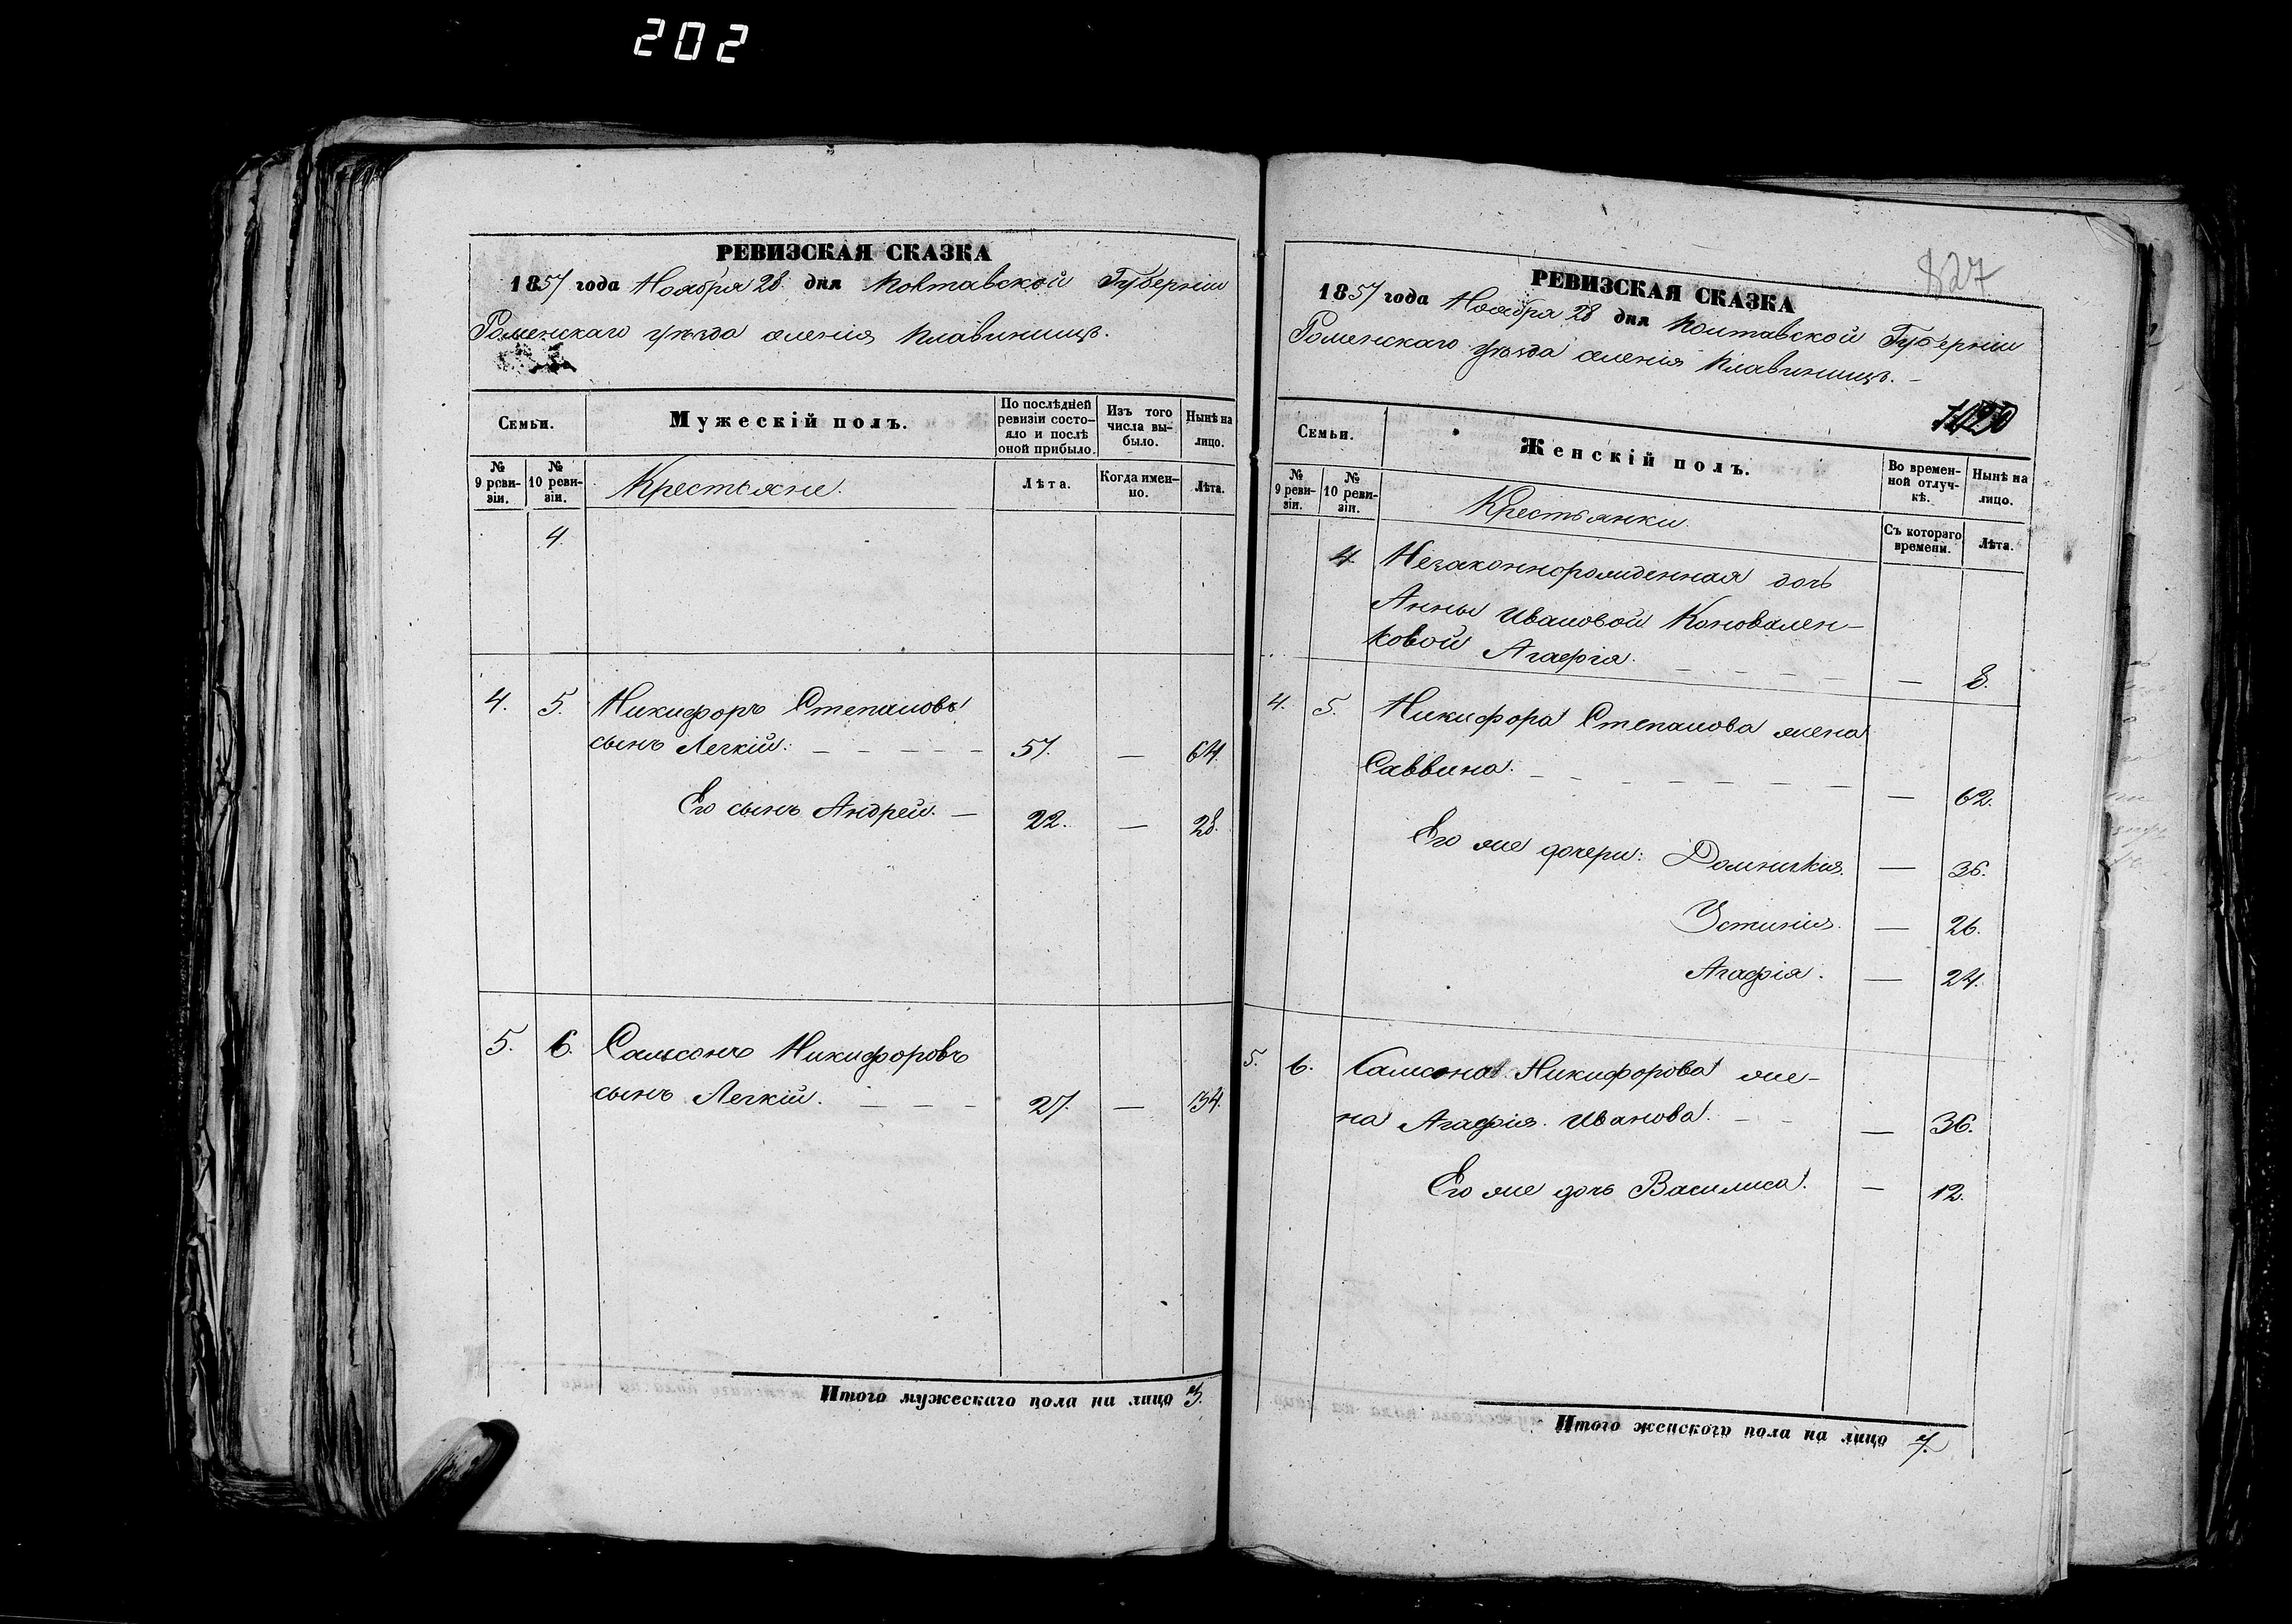 202
РЕВИЗСКАЯ СКАЗКА
1857 года Ноября 28 дня Полтавской Губерніи
Роменскаго уѣзда селенія Плавинищъ.
Семьи.
Мужескій полъ.
По послѣдней ревизіи состо-яло и послѣ оной прибыло.
Изъ того числа вы-было.
Нынѣ на лицо.
№ 9 реви-зіи.
№ 10 реви-зіи.
Крестьяне.
Лѣта.
Когда имен-но.
Лѣта.
4.
4. 5. Никифоръ Степановъ
сынъ Легкій. 57. — 64.
Его сынъ Андрей. — 22. — 28.
5. 6. Самсонъ Никифоровъ
сынъ Легкій. 27. — 34.
Итого мужескаго пола на лицо 3.
827
РЕВИЗСКАЯ СКАЗКА
1857 года Ноября 28 дня Полтавской Губерніи
Роменскаго уѣзда селенія Плавинищъ.
Семьи.
Женскій полъ.
Во времен-ной отлуч-кѣ.
Нынѣ на лицо.
№ 9 реви-зіи.
№ 10 реви-зіи.
Крестьянки.
Съ котораго времени.
Лѣта.
4. Незаконнорожденная дочь
Анны Ивановой Коновален-
ковой Агафія. — 8.
4. 5. Никифора Степанова жена
Саввина. — 62.
Его же дочери: Домникія. — 36.
Устинія. — 26.
Агафія. — 24.
5. 6. Самсона Никифорова же-
на Агафія Иванова. — 36.
Его же дочь Василиса. — 12.
Итого женскаго пола на лицо 7.